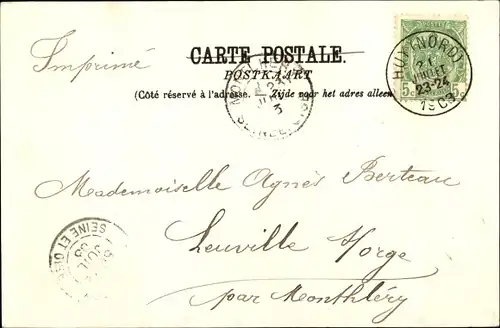 Imprimé
CARTE POSTALE.
POSTKAART
(Côté réservé à l'adresse. — Zijde voor het adres alleen)
HUY (NORD)
21
JUILLET
23-24
1903
5c 5c
Mademoiselle Agnès Berteau
Leuville /orge
par Monthléry
SEINE ET OISE